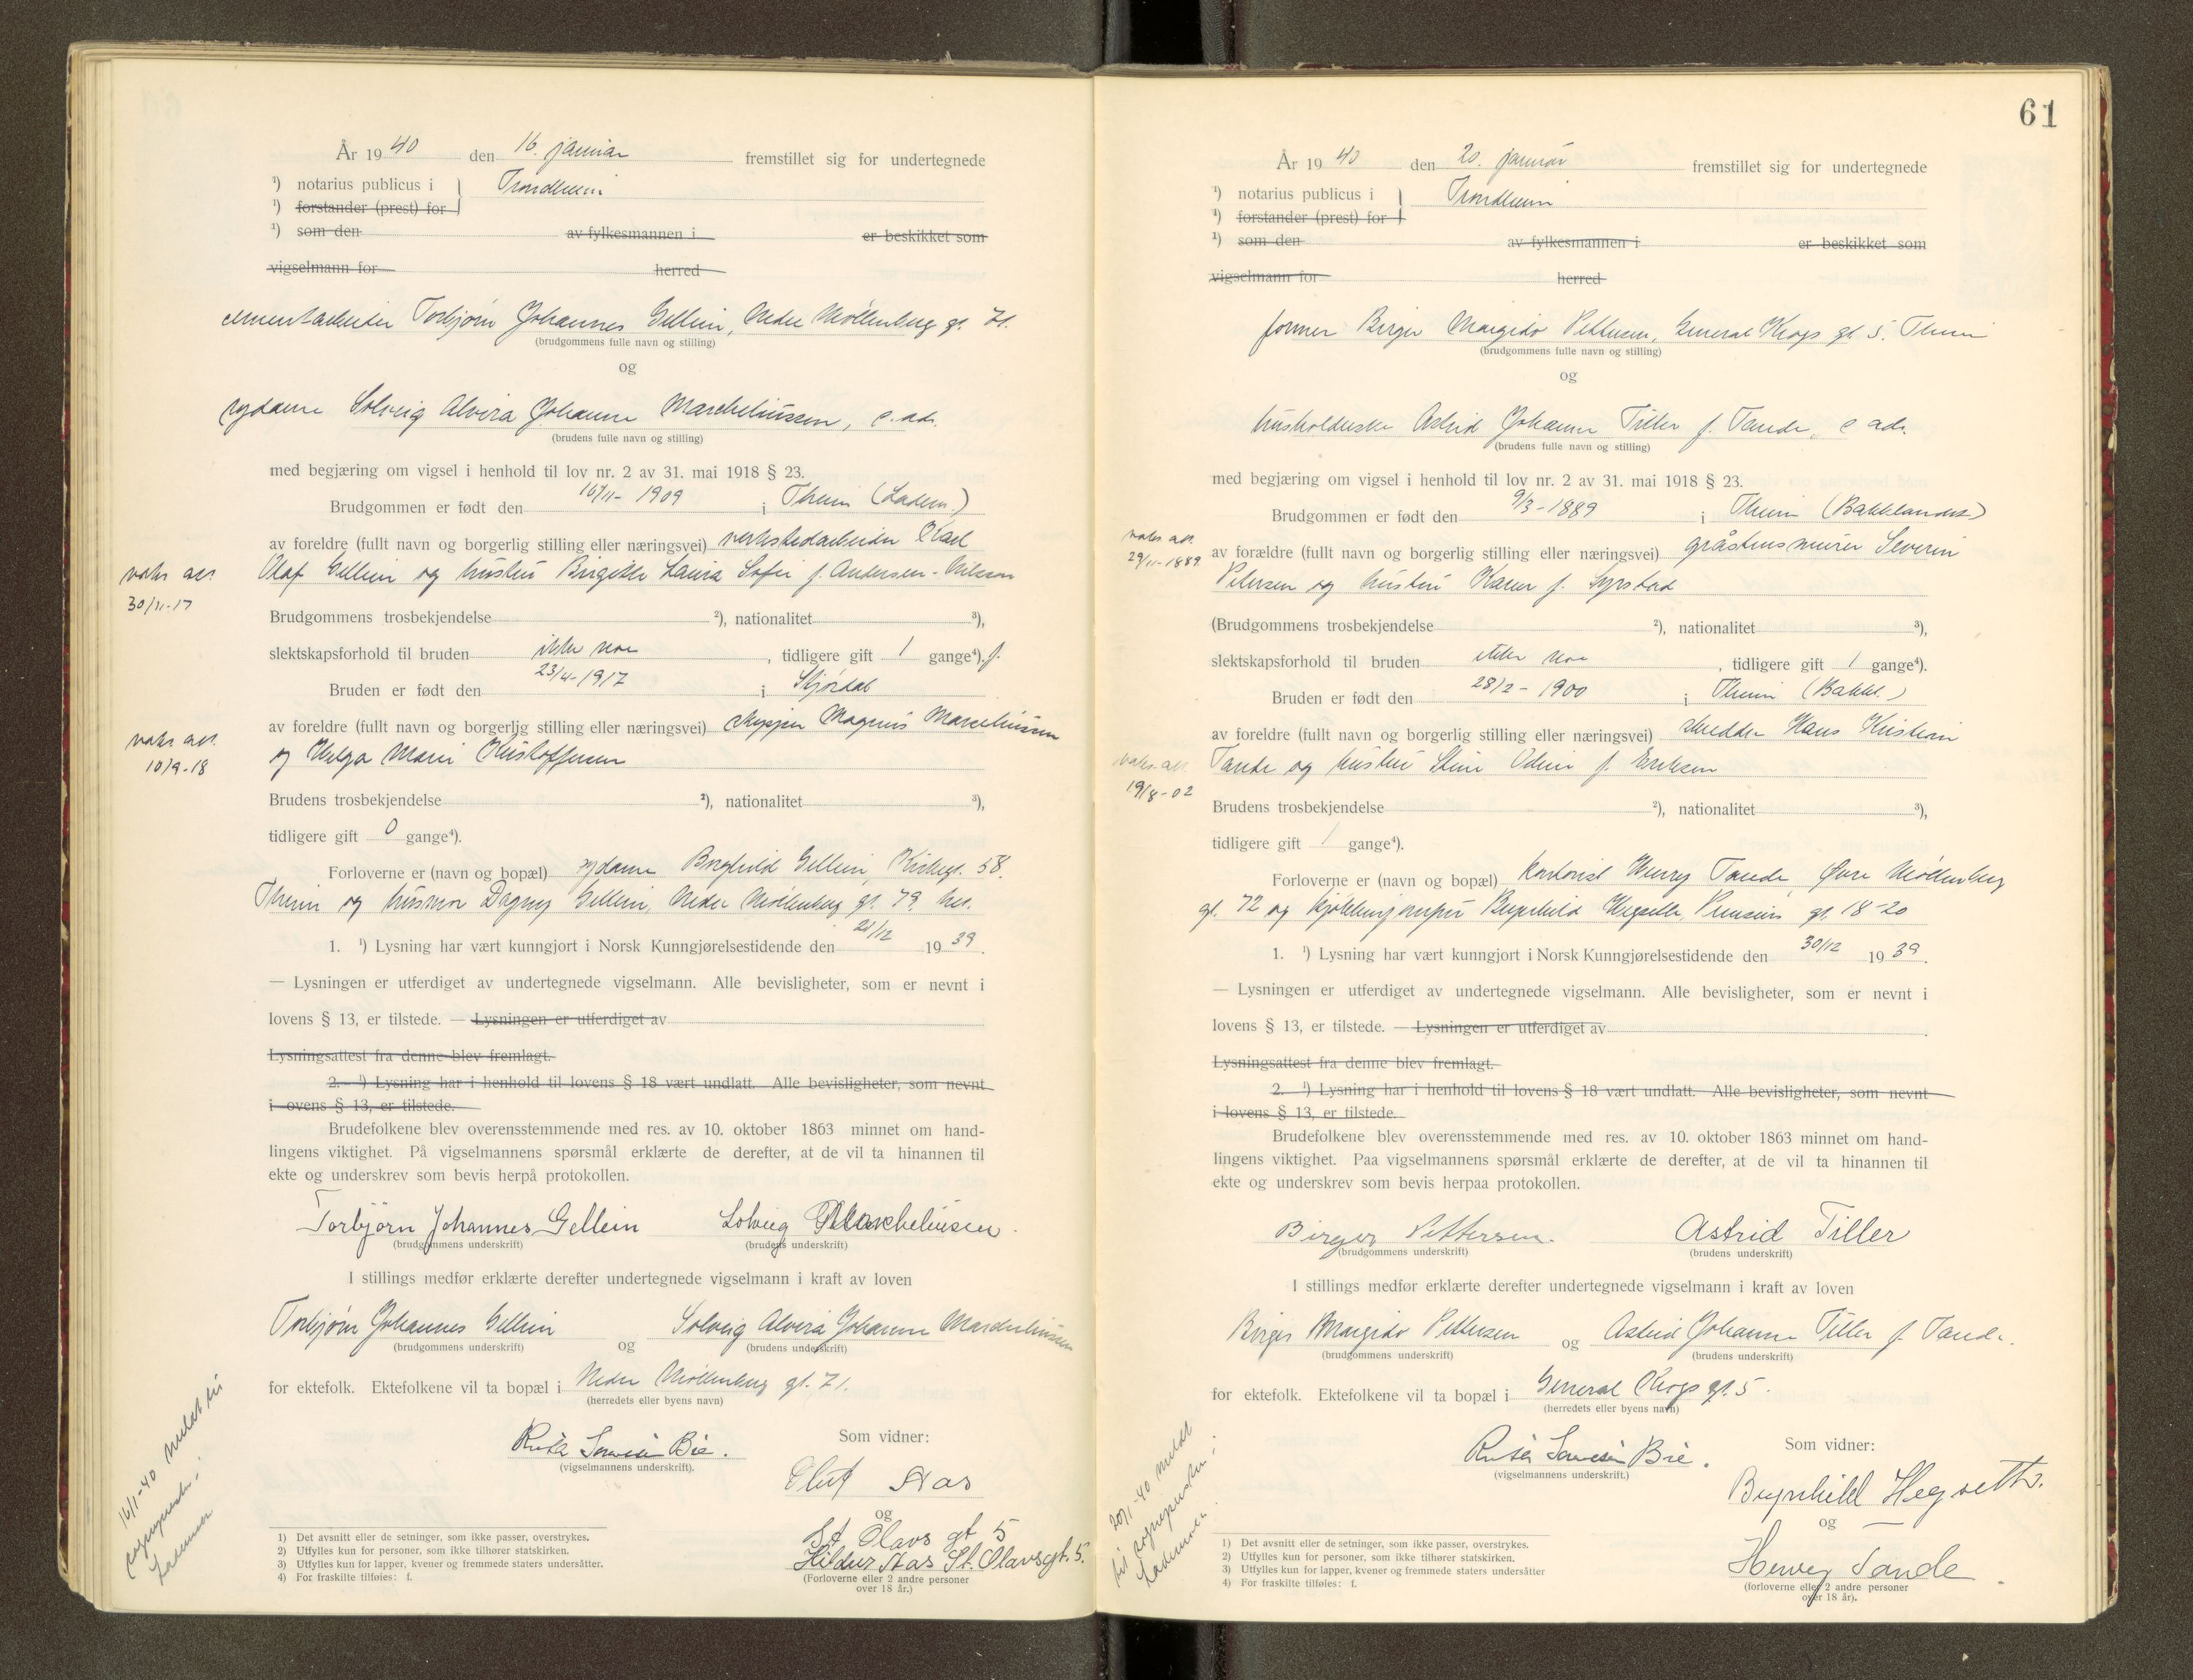 År 1940 den 16. januar fremstillet sig for undertegnede
¹) notarius publicus i } Trondheim
¹) forstander (prest) for
¹) som den av fylkesmannen i er beskikket som
vigselmann for herred
cementarbeider Torbjørn Johannes Gellein, Nedre Møllenberg gt. 71.
(brudgommens fulle navn og stilling)
og
sydame Solveig Alvira Johanne Markheliussen, s. adr.
(brudens fulle navn og stilling)
med begjæring om vigsel i henhold til lov nr. 2 av 31. mai 1918 § 23.
Brudgommen er født den 16/11- 1909 i Theim (Ladem.)
av foreldre (fullt navn og borgerlig stilling eller næringsvei) verkstedarbeider Karl
vaks att. 30/11-17
Olaf Gellein og hustru Birgitte Laura Sofie f. Andersen-Nilsson
Brudgommens trosbekjendelse ²), nationalitet ³),
slektskapsforhold til bruden ikke noe, tidligere gift 1 gange⁴). f.
Bruden er født den 23/4-1917 i Stjørdal
av foreldre (fullt navn og borgerlig stilling eller næringsvei) skipper Magnus
vaks att. 10/9-18
og Helga Marie Kristoffersen
Brudens trosbekjendelse ²), nationalitet ³),
tidligere gift 0 gange⁴).
Forloverne er (navn og bopæl) sydame Borghild Gellein, Kirkegt. 58.
Theim og husmor Dagny Gellein, Nedre Møllenberg gt. 79. her.
1. ¹) Lysning har vært kunngjort i Norsk Kunngjørelsestidende den 21/12 1939.
— Lysningen er utferdiget av undertegnede vigselmann. Alle bevisligheter, som er nevnt i
lovens § 13, er tilstede. — Lysningen er utferdiget av
Lysningsattest fra denne blev fremlagt.
2. ¹) Lysning har i henhold til lovens § 18 vært undlatt. Alle bevisligheter, som nevnt
i ovens § 13, er tilstede.
Brudefolkene blev overensstemmende med res. av 10. oktober 1863 minnet om hand-
lingens viktighet. På vigselmannens spørsmål erklærte de derefter, at de vil ta hinannen til
ekte og underskrev som bevis herpå protokollen.
Torbjørn Johannes Gellein Solveig Markheliussen.
(brudgommens underskrift) (brudens underskrift)
I stillings medfør erklærte derefter undertegnede vigselmann i kraft av loven
Torbjørn Johannes Gellein og Solveig Alvira Johanne Markheliussen
(brudgommens underskrift) (brudens underskrift)
for ektefolk. Ektefolkene vil ta bopæl i Nedre Møllenberg gt. 71.
(herredets eller byens navn)
Som vidner:
Bie.
(vigselmannens underskrift).
Oluf Aas
og
St Olavs gt 5
Hildur Aas St. Olavsgt. 5.
(Forloverne eller 2 andre personer
over 18 år.)
16/1-40 meldt til
sognepresten i
Lademoen
1) Det avsnitt eller de setninger, som ikke passer, overstrykes.
2) Utfylles kun for personer, som ikke tilhører statskirken.
3) Utfylles kun for lapper, kvener og fremmede staters undersåtter.
4) For fraskilte tilføies: f.
61
År 1940 den 20. januar fremstillet sig for undertegnede
¹) notarius publicus i } Trondheim
¹) forstander (prest) for
¹) som den av fylkesmannen i er beskikket som
vigselmann for herred
former Birger Margido Pettersen, General Krogs gt. 5. Theim
(brudgommens fulle navn og stilling)
og
husholderske Astrid Johanne Tiller f. Tande, s adr.
(brudens fulle navn og stilling)
med begjæring om vigsel i henhold til lov nr. 2 av 31. mai 1918 § 23.
Brudgommen er født den 9/3-1889 i Theim (Bakklandet)
vaks att. 29/11-1889
av forældre (fullt navn og borgerlig stilling eller næringsvei) gråstensmurer Severin
Petersen og hustru Karen f. Syrstad
(Brudgommens trosbekjendelse ²), nationalitet ³),
slektskapsforhold til bruden ikke noe, tidligere gift 1 gange⁴).
Bruden er født den 28/2 - 1900 i Theim (Bakkl.)
av foreldre (fullt navn og borgerlig stilling eller næringsvei) skredder Hans Kristian
vaks. att. 19/8-02
Tande og hustru Stine Odine f. Eriksen
Brudens trosbekjendelse ²), nationalitet ³),
tidligere gift 1 gange⁴).
Forloverne er (navn og bopæl) kontorist Henry Tande, Øvre Møllenberg
gt. 72 og kjøkkenjomfru Brynhild Hegseth, Prinsens gt. 18-20
1. ¹) Lysning har vært kunngjort i Norsk Kunngjørelsestidende den 30/12 1939.
— Lysningen er utferdiget av undertegnede vigselmann. Alle bevisligheter, som er nevnt i
lovens § 13, er tilstede. — Lysningen er utferdiget av
Lysningsattest fra denne blev fremlagt.
2. ¹) Lysning har i henhold til lovens § 18 vært undlatt. Alle bevisligheter, som nevnt
i lovens § 13, er tilstede.
Brudefolkene blev overensstemmende med res. av 10. oktober 1863 minnet om hand-
lingens viktighet. Paa vigselmannens spørsmål erklærte de derefter, at de vil ta hinannen til
ekte og underskrev som bevis herpaa protokollen.
Birger Pettersen. Astrid Tiller
(brudgommens underskrift) (brudens underskrift)
I stillings medfør erklærte derefter undertegnede vigselmann i kraft av loven
Birger Margido Pettersen og Astrid Johanne Tiller f. Tande.
(brudgommens underskrift) (brudens underskrift)
for ektefolk. Ektefolkene vil ta bopæl i General Krogs gt. 5.
(herredets eller byens navn)
Som vidner:
Bie.
(vigselmannens underskrift.)
Brynhild Hegseth.
og
Henry Tande.
(forloverne eller 2 andre personer
over 18 år).
20/1-40 meldt
til sognepresten i
Lademoen.
1) Det avsnitt eller de setninger, som ikke passer, overstrykes.
2) Utfylles kun for personer, som ikke tilhører statskirken.
3) Utfylles kun for lapper, kvener og fremmede staters undersåtter
4) For fraskilte tilføies: f.